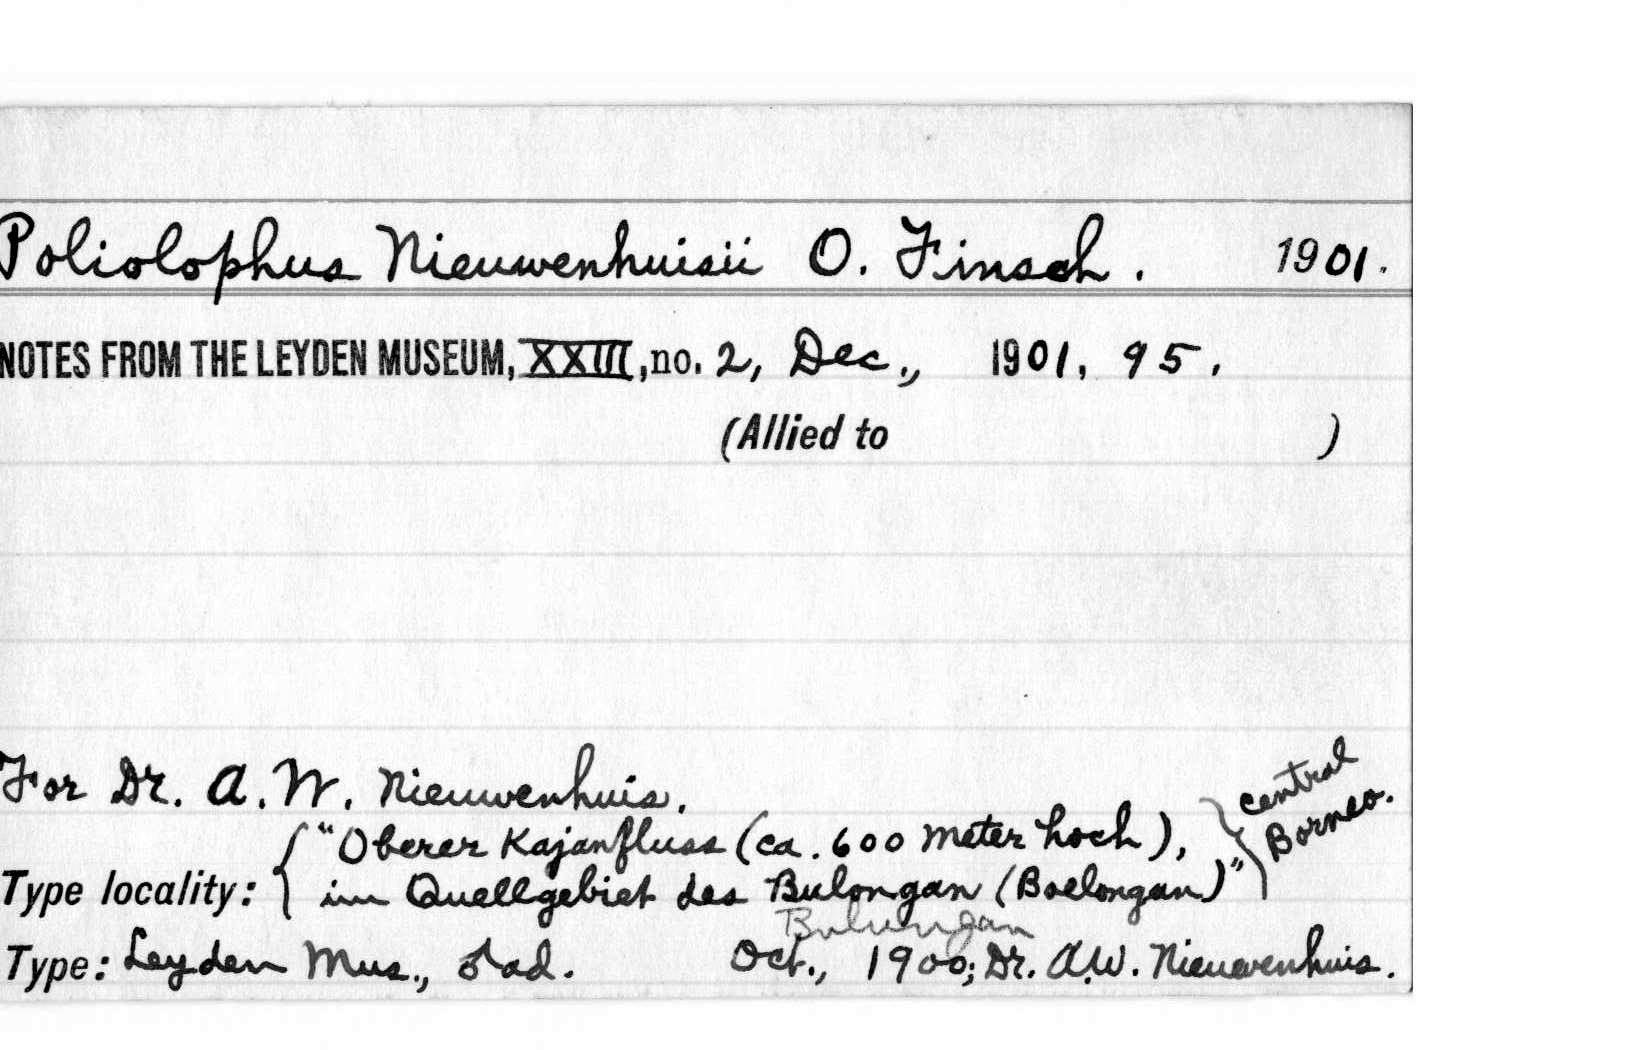 Poliolophus Nieuwenhuisii O. Finsch. 1901.
NOTES FROM THE LEYDEN MUSEUM, XXIII, no. 2, Dec., 1901, 95.
(Allied to )
For Dr. A. W. Nieuwenhuis.
Type locality: { "Oberer Kajanfluss (ca. 600 Meter hoch),
im Quellgebiet des Bulongan (Boelongan)" } central Borneo.
Bulungan
Type: Leyden Mus., ♂ ad. Oct., 1900; Dr. A.W. Nieuwenhuis.